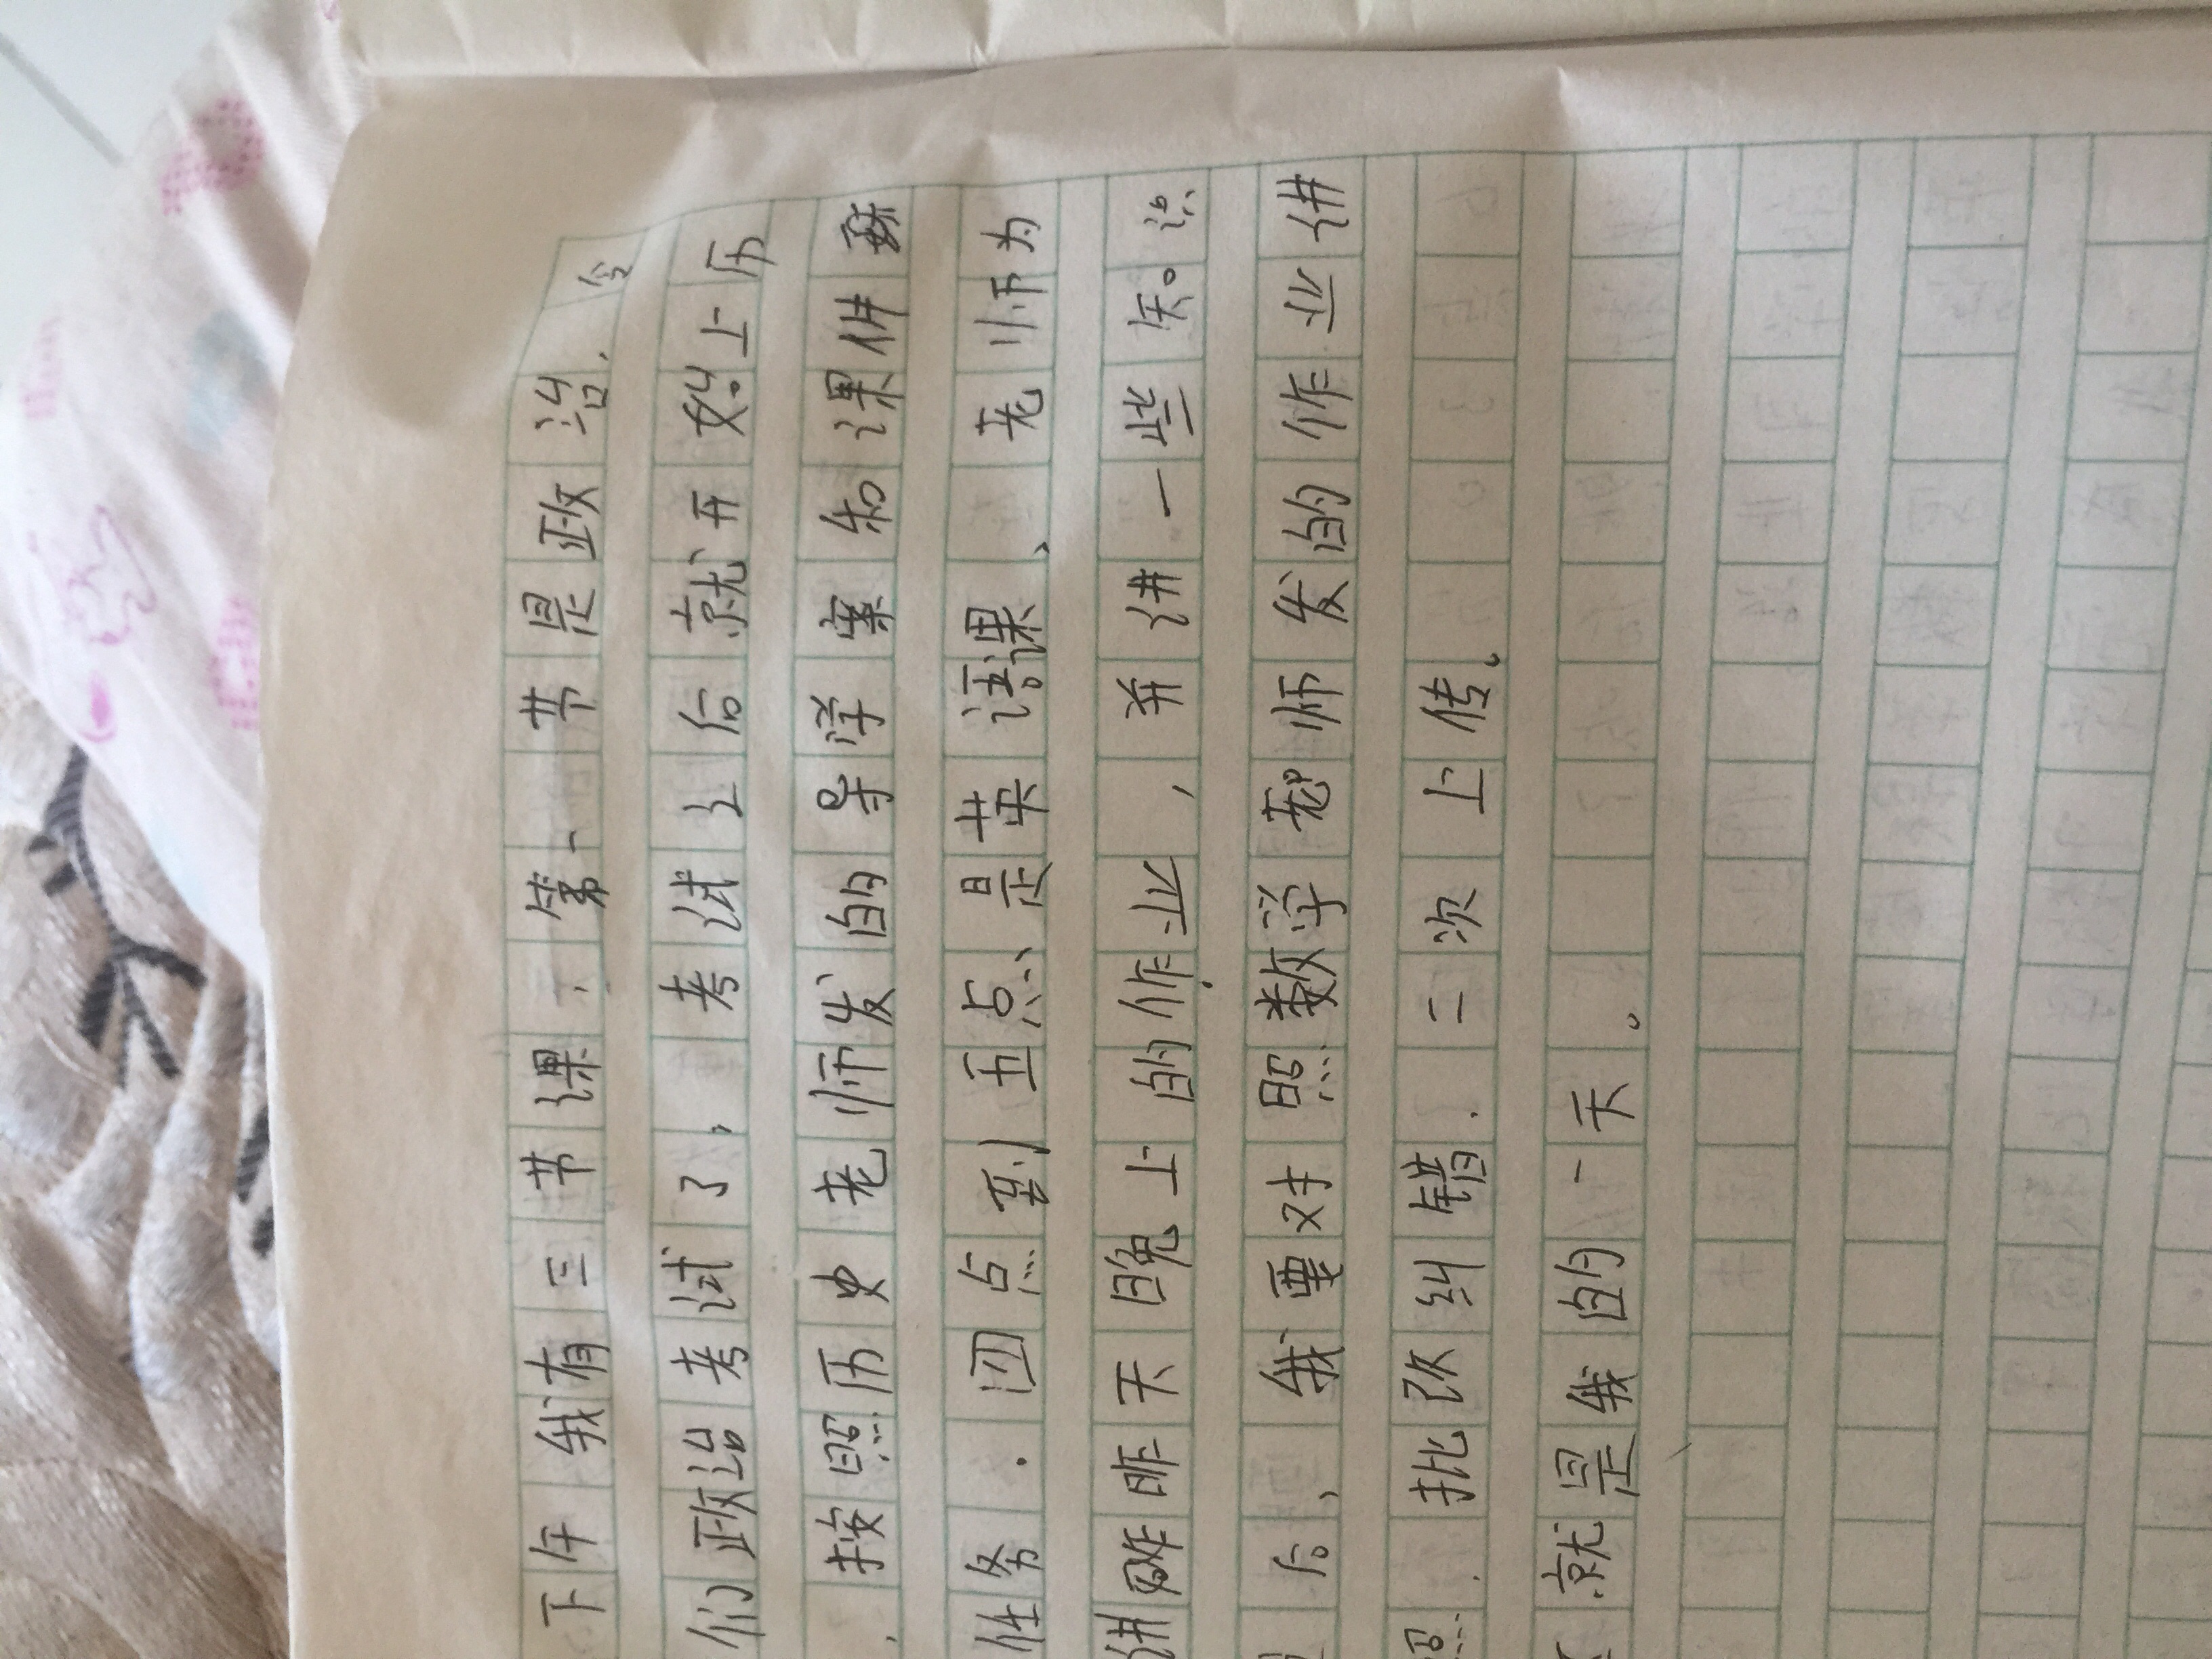 下午我有三节课,第一节是政治,今
们政治考试了,考试之后就开始上历
,按照历史老师发的导学案和课件
任务.四点到五点、是英语课、老师为
讲昨天晚上的作业,并讲一些知识。
后、我要对照数学老师发的作业讲
照.批改纠错.二次上传。
就是我的一天。